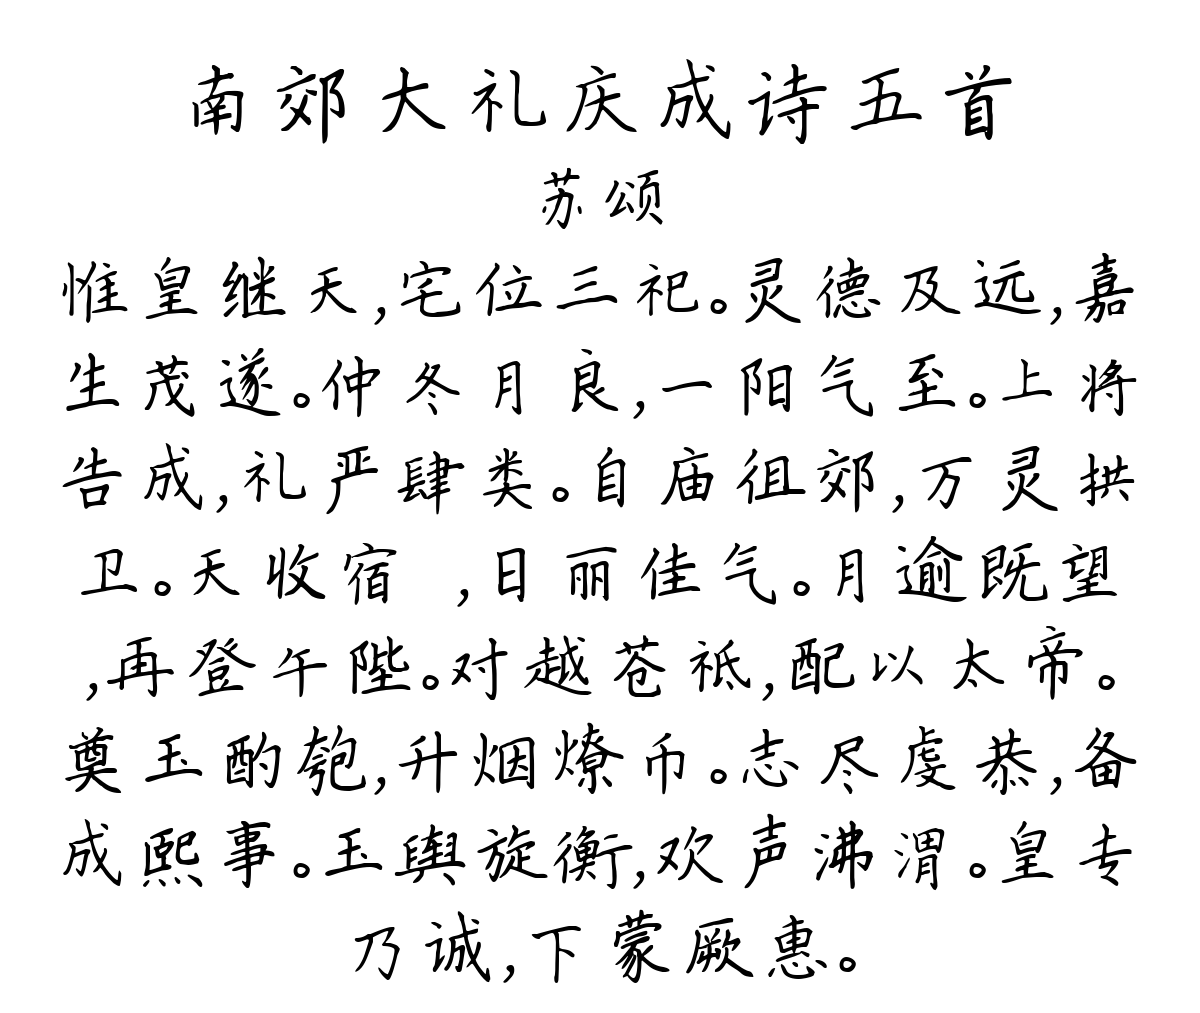 南郊大礼庆成诗五首
苏颂
惟皇继天,宅位三祀。灵德及远,嘉
生茂遂。仲冬月良,一阳气至。上将
告成,礼严肆类。自庙徂郊,万灵拱
卫。天收宿 ,日丽佳气。月逾既望
,再登午陛。对越苍祗,配以太帝。
奠玉酌匏,升烟燎币。志尽虔恭,备
成熙事。玉舆旋衡,欢声沸渭。皇专
乃诚,下蒙厥惠。